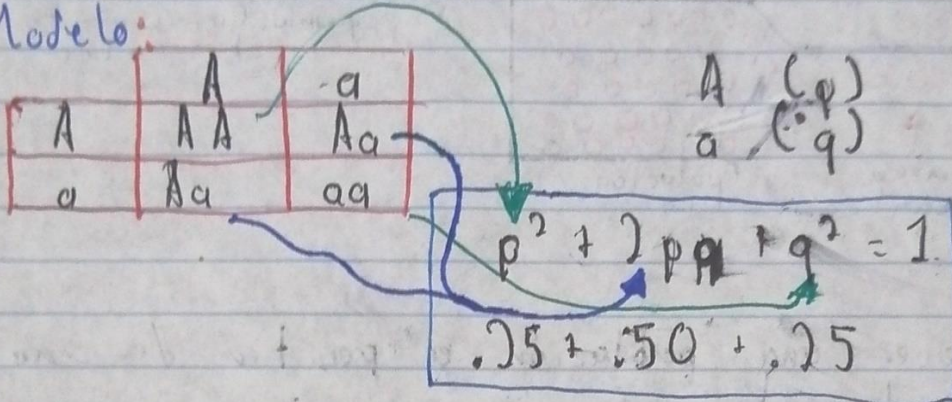 Modelo:
A a
A AA Aa
a Aa aa
A (p)
a (q)
p² + 2pq + q² = 1
.25 + .50 + .25